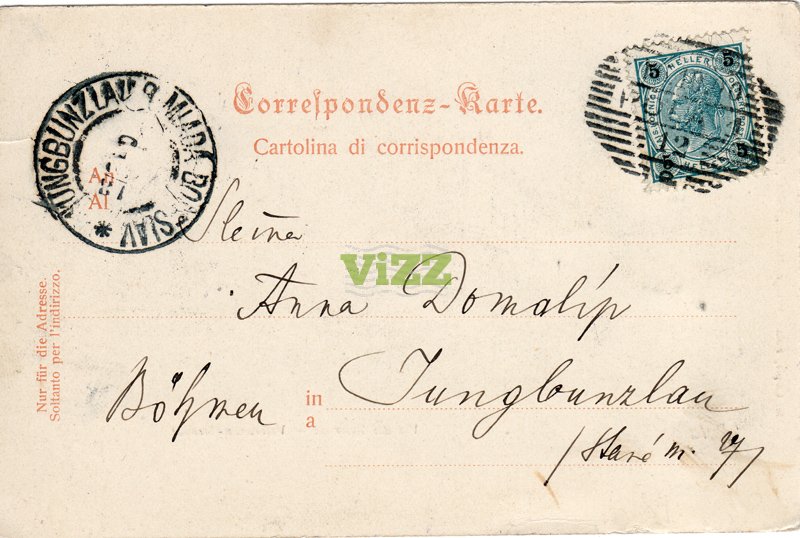 Correspondenz-Karte.
Cartolina di corrispondenza.
JUNGBUNZLAU MLADÁ BOLESLAV
5 HELLER 5
5
An
Al
Slečna
ViZZ
Anna Domalíp
Böhmen
in
a
Jungbunzlau
/Staré m.
Nur für die Adresse.
Soltanto per l'indirizzo.